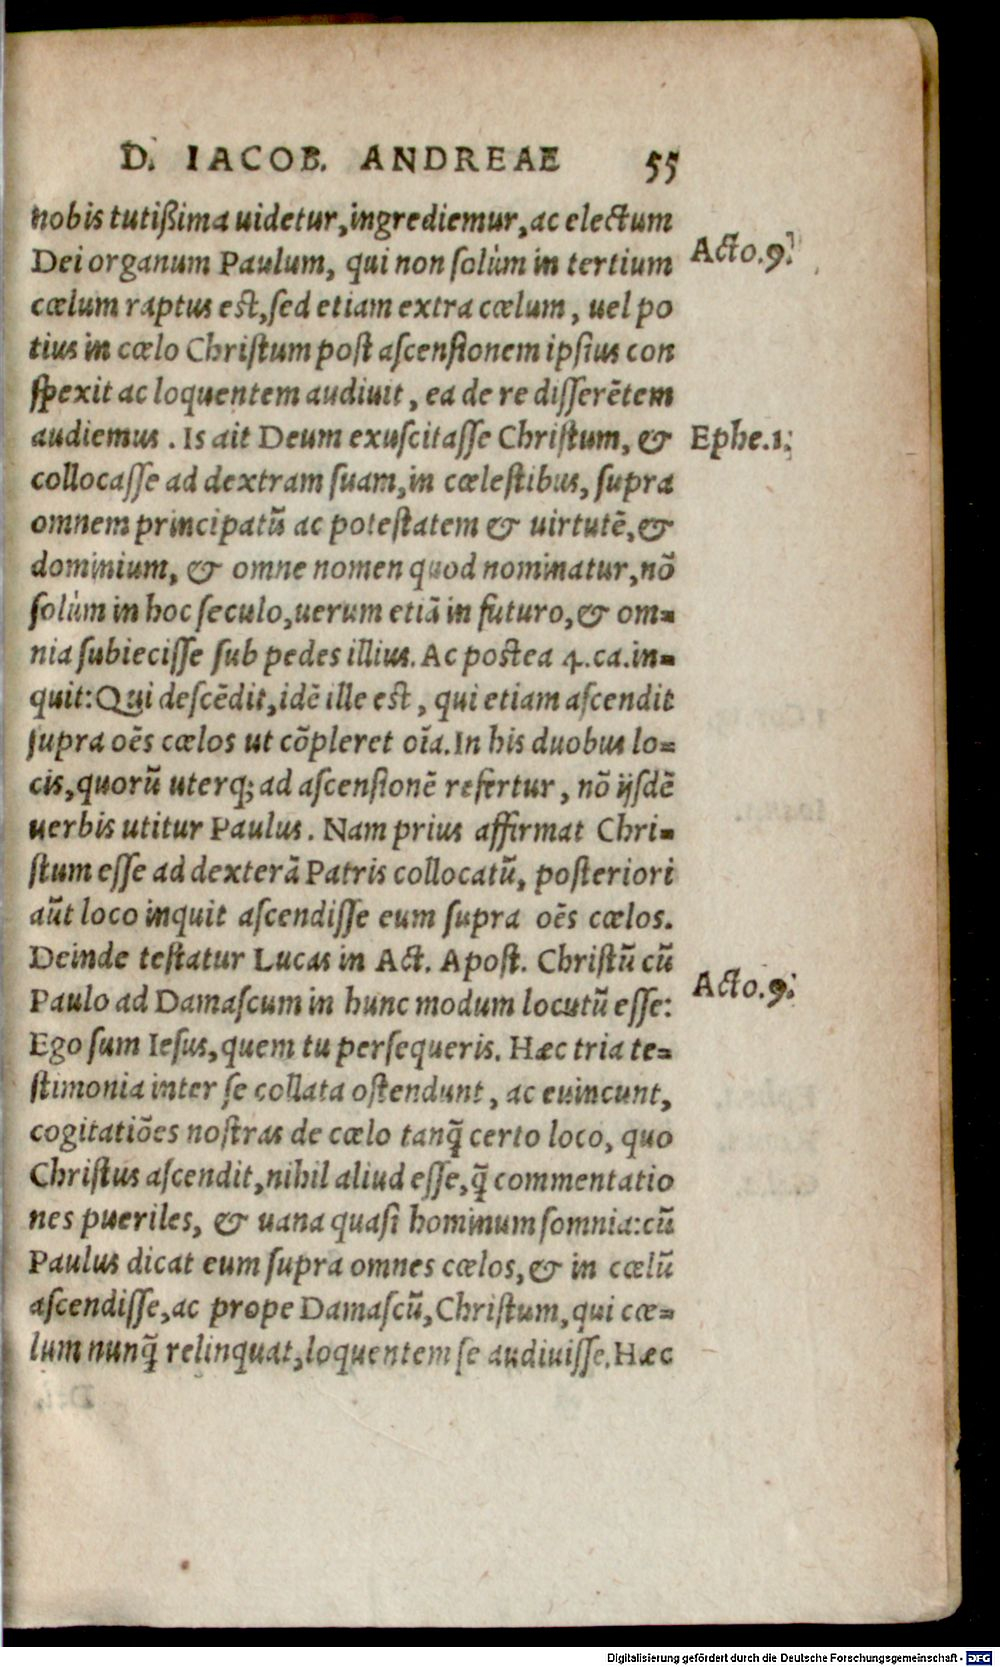 D. IACOB. ANDREAE 55
nobis tutißima uidetur, ingrediemur, ac electum
Acto.9.
Dei organum Paulum, qui non ſolùm in tertium
cœlum raptus est, ſed etiam extra cœlum, uel po
tius in cœlo Chriſtum poſt aſcenſionem ipſius con
ſpexit ac loquentem audiuit, ea de re diſſerētem
audiemus. Is ait Deum exuſcitaſſe Chriſtum, &
Ephe.1.
collocaſſe ad dextram ſuam, in cœleſtibus, ſupra
omnem principatū ac poteſtatem & uirtutē, &
dominium, & omne nomen quod nominatur, nō
ſolùm in hoc ſeculo, uerum etiā in futuro, & om=
nia ſubieciſſe ſub pedes illius. Ac postea 4. ca. in=
quit: Qui deſcēdit, idē ille est, qui etiam aſcendit
ſupra oēs cœlos ut cōpleret oīa. In his duobus lo=
cis, quorū uterq; ad aſcenſionē refertur, nō ijſdē
uerbis utitur Paulus. Nam prius affirmat Chri=
ſtum eſſe ad dexterā Patris collocatū, poſteriori
aūt loco inquit aſcendiſſe eum ſupra oēs cœlos.
Deinde teſtatur Lucas in Act. Apoſt. Chriſtū cū
Acto.9.
Paulo ad Damaſcum in hunc modum locutū eſſe:
Ego ſum Ieſus, quem tu perſequeris. Hæc tria te=
ſtimonia inter ſe collata oſtendunt, ac euincunt,
cogitatiōes noſtras de cœlo tanq̄ certo loco, quo
Chriſtus aſcendit, nihil aliud eſſe, q̄ commentatio
nes pueriles, & uana quaſi hominum ſomnia: cū
Paulus dicat eum ſupra omnes cœlos, & in cœlū
aſcendiſſe, ac prope Damaſcū, Chriſtum, qui cœ=
lum nunq̄ relinquat, loquentem ſe audiuiſſe. Hæc
Digitalisierung gefördert durch die Deutsche Forschungsgemeinschaft - DFG